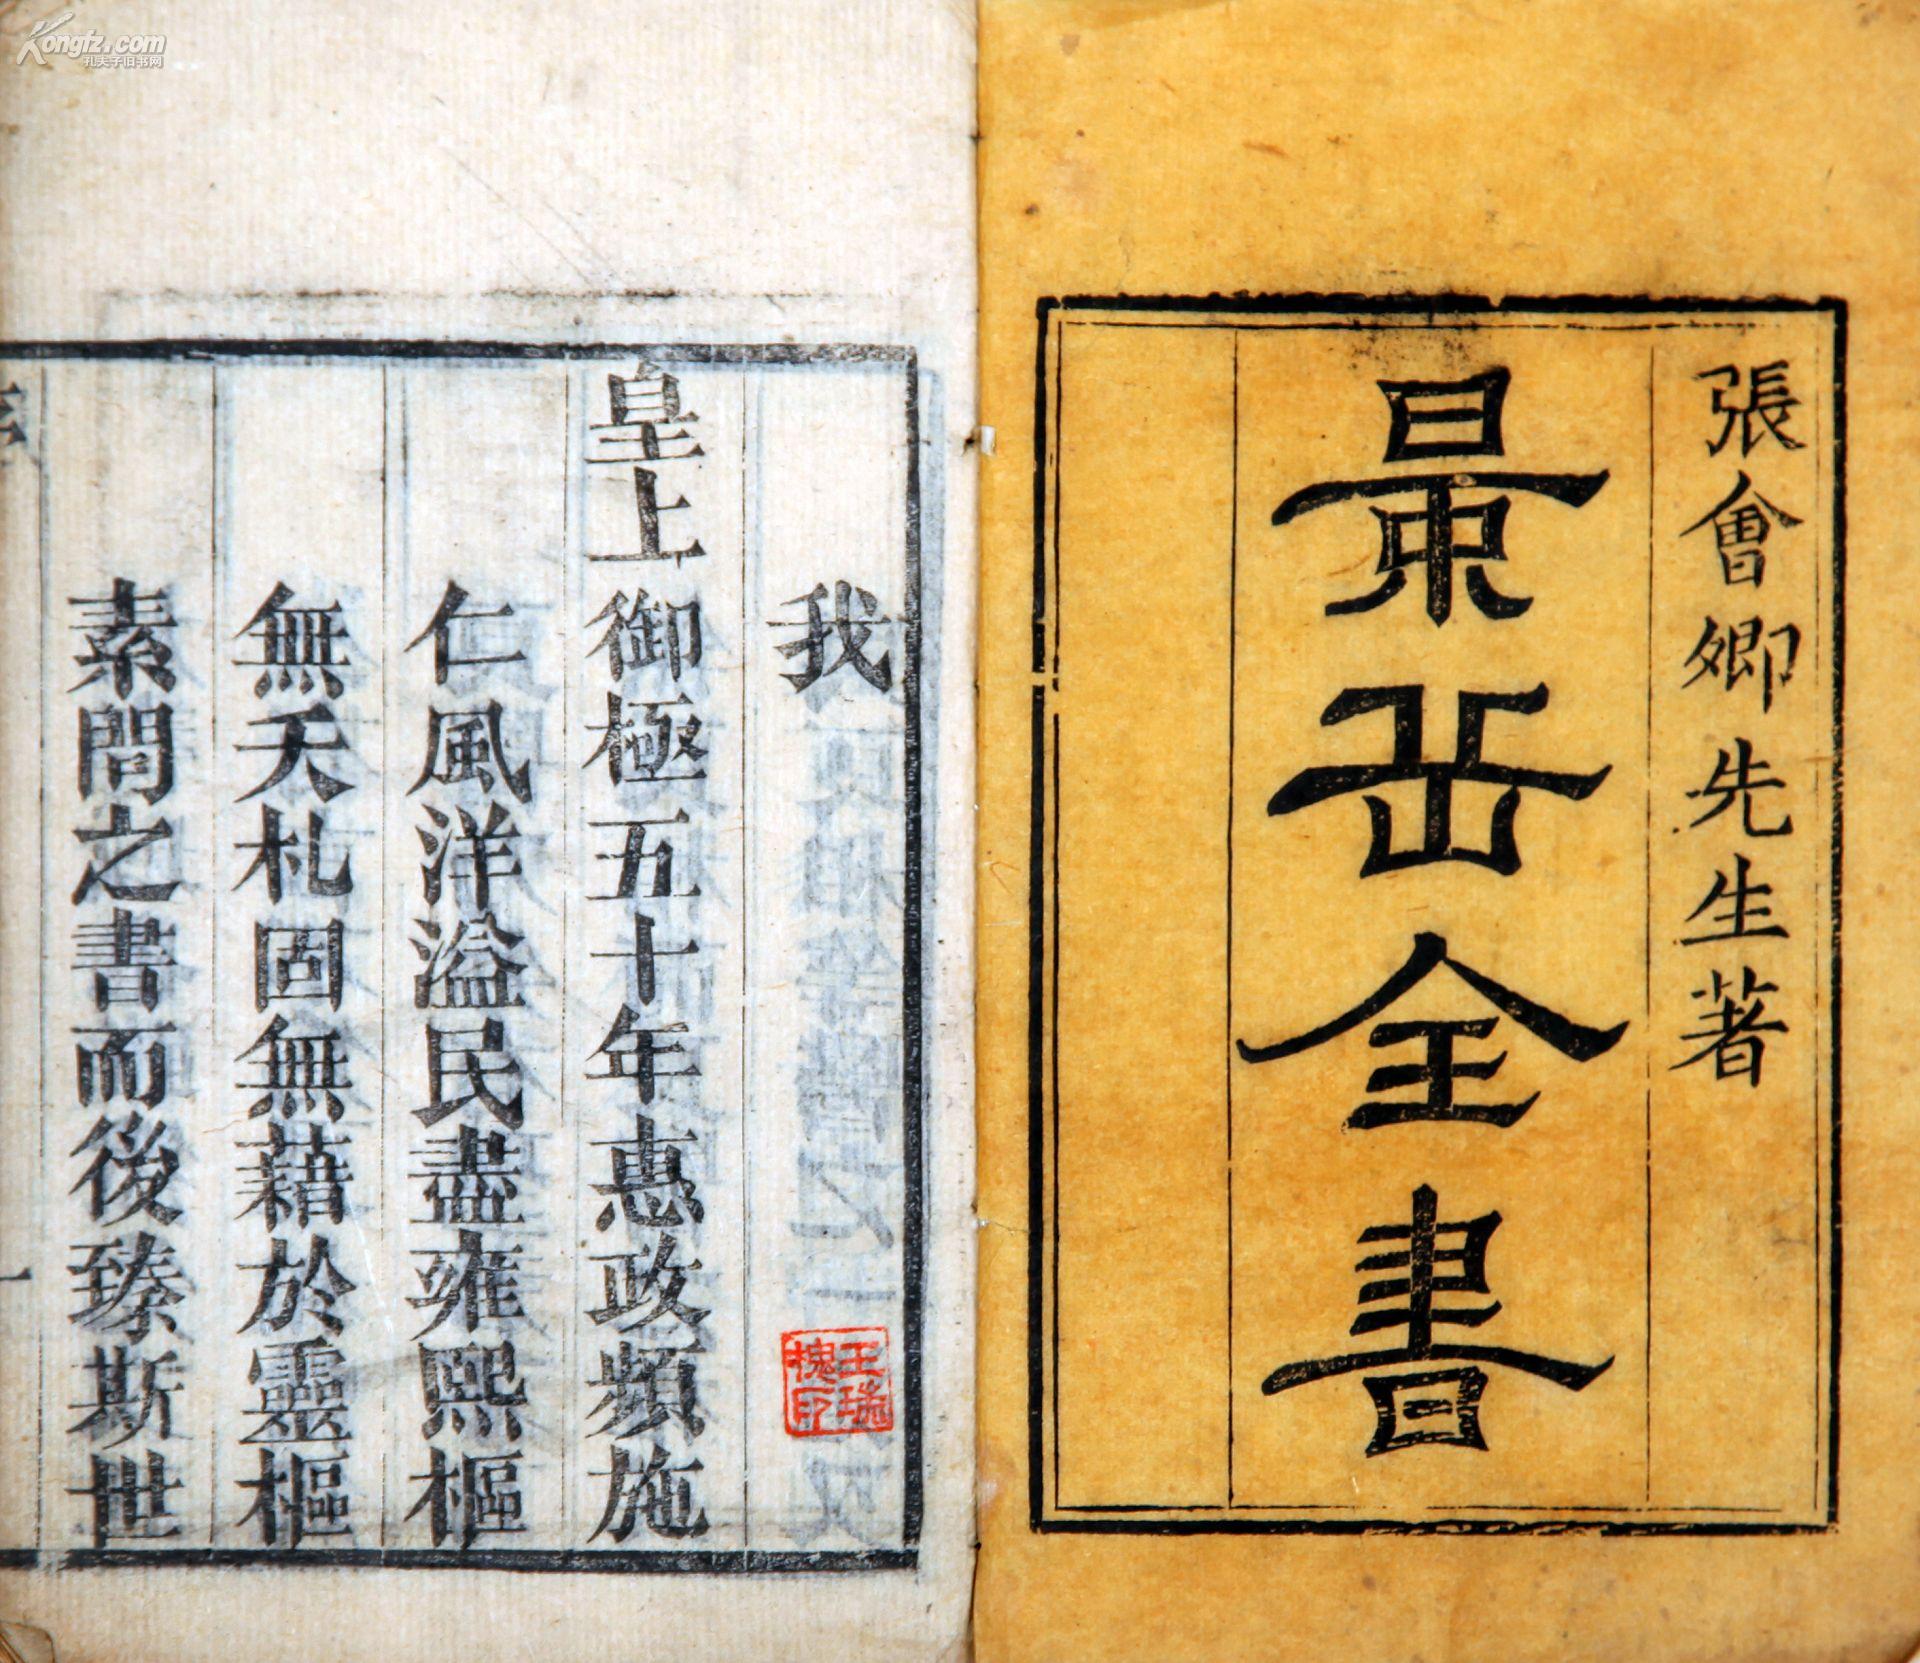 張會卿先生著
景岳全書
我
皇上御極五十年惠政頻施
仁風洋溢民盡雍熙樞
無夭札固無藉於靈樞
素問之書而後臻斯世
王瑞
槐印
Kongfz.com
孔夫子旧书网